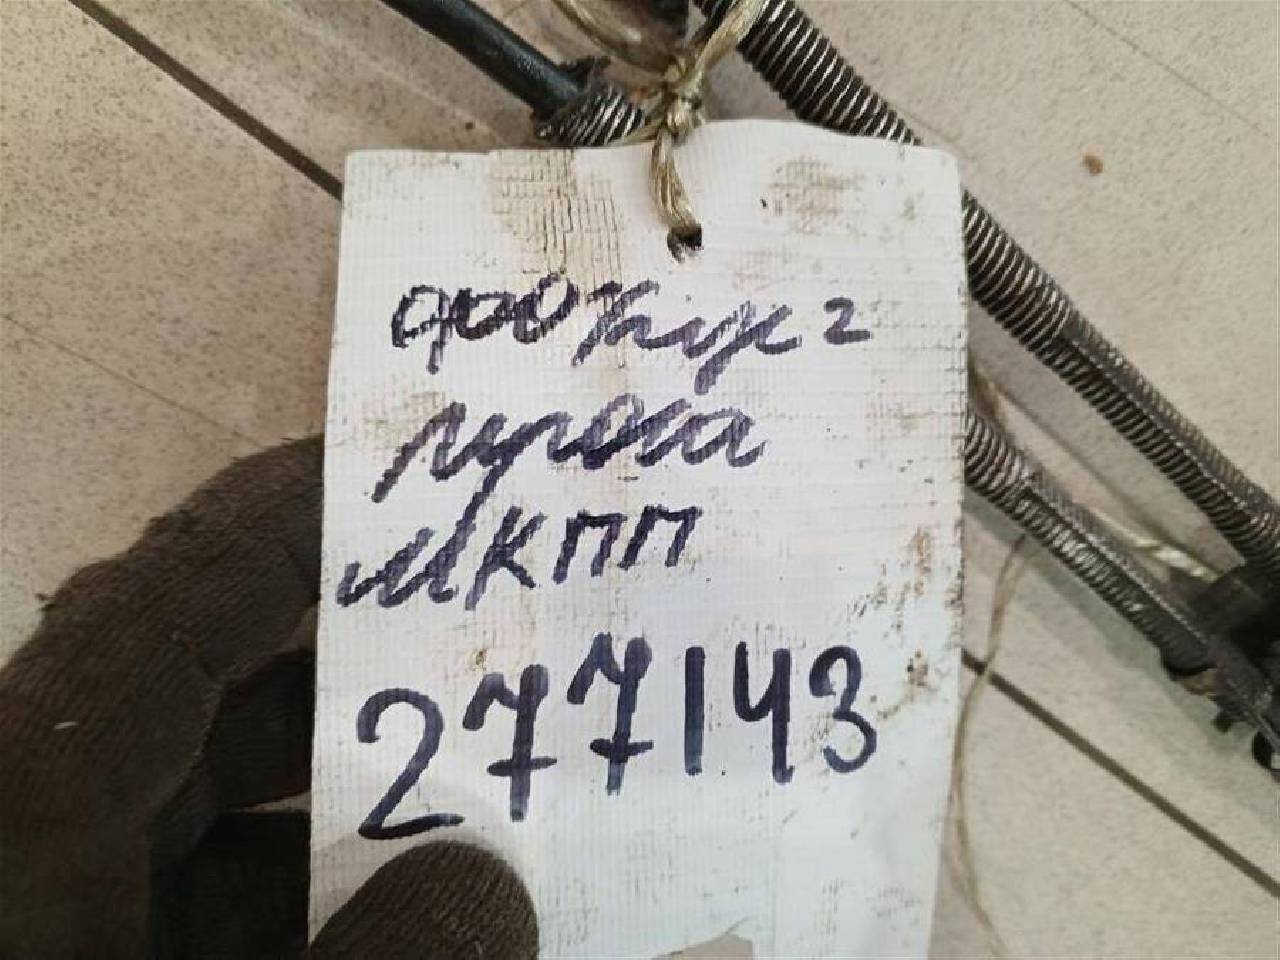 фокус 2
троса
МКПП
277143